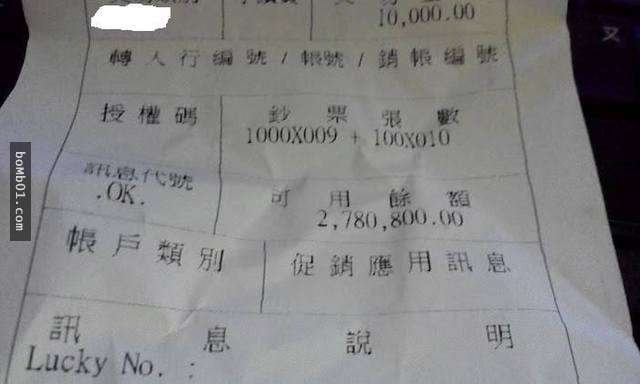 10,000.00
轉入行編號/帳號/銷帳編號
授權碼
鈔票張數
1000X009 + 100X010
訊息代號
.OK.
可用餘額
2,780,800.00
帳戶類別
促銷應用訊息
訊息說明
Lucky No. :
boMb01.com
又